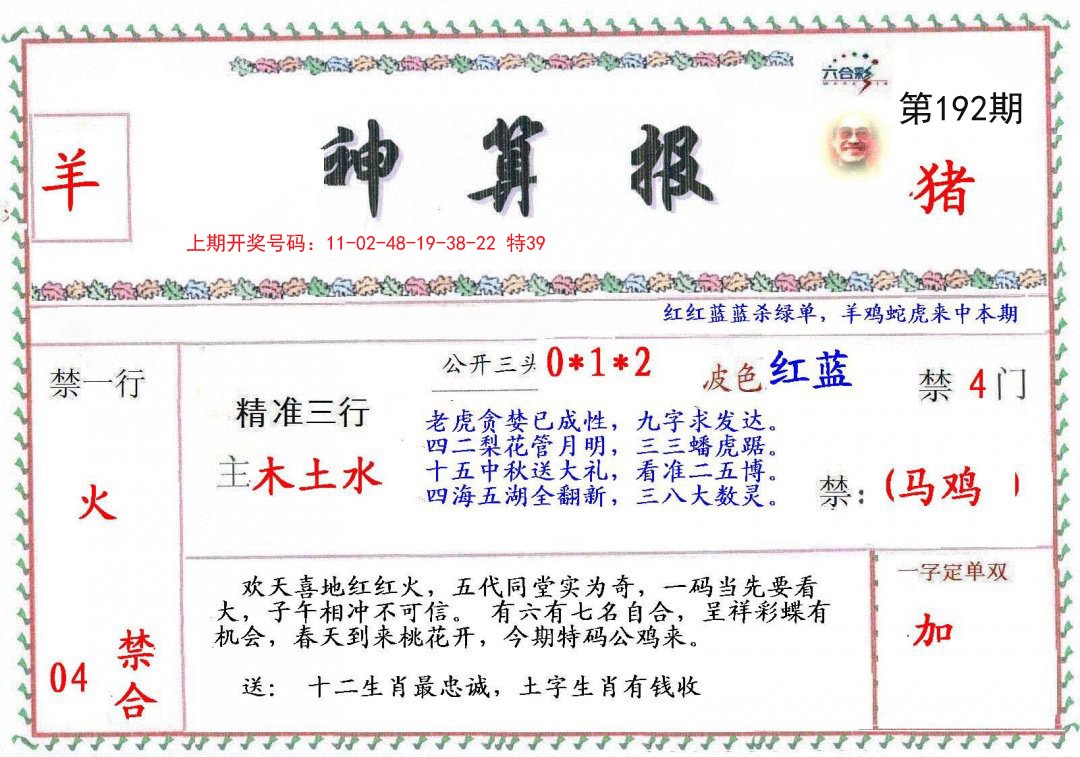 六合彩
第192期
羊
神算报
猪
上期开奖号码：11-02-48-19-38-22 特39
红红蓝蓝杀绿单，羊鸡蛇虎来中本期
禁一行
火
04
禁合
精准三行
主木土水
公开三头0*1*2
波色红蓝
禁4门
老虎贪婪已成性，九字求发达。
四二梨花管月明，三三蟠虎踞。
十五中秋送大礼，看准二五博。
四海五湖全翻新，三八大数灵。
禁：(马鸡 )
欢天喜地红红火，五代同堂实为奇，一码当先要看
大，子午相冲不可信。有六有七名自合，呈祥彩蝶有
机会，春天到来桃花开，今期特码公鸡来。
送： 十二生肖最忠诚，土字生肖有钱收
一字定单双
加